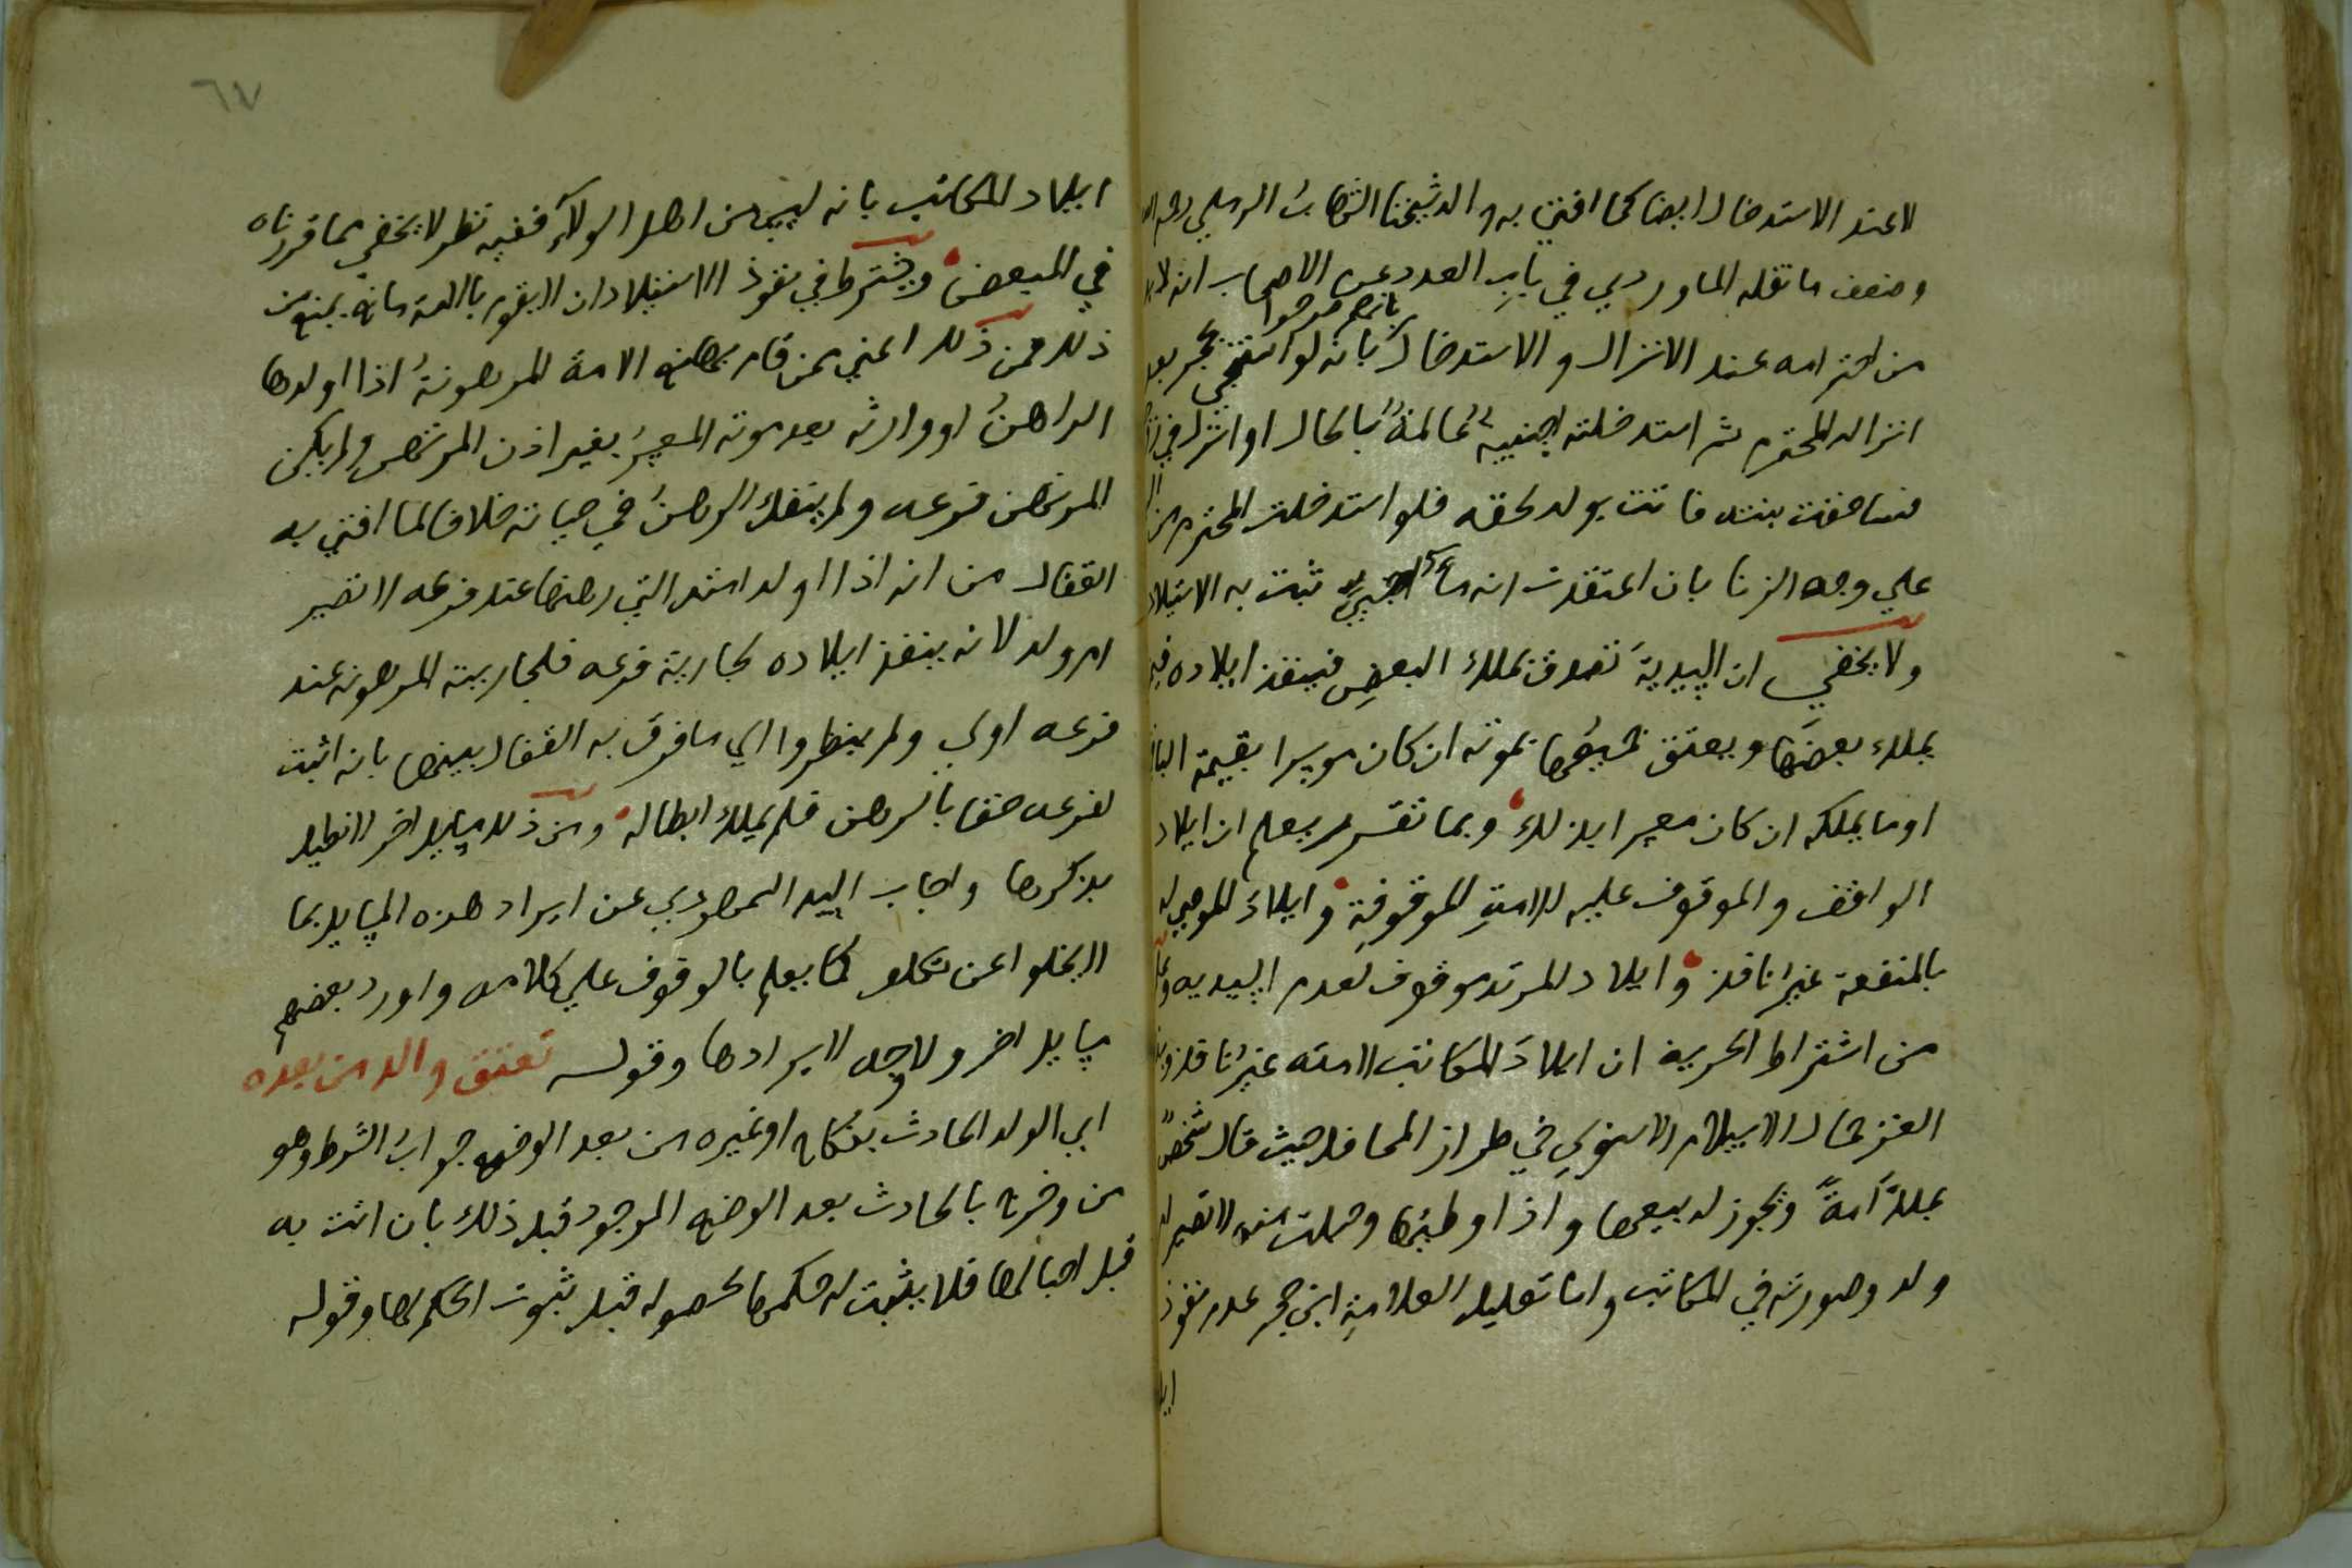 لا عند الاستدخال ايضا كما افتى به والد شيخنا الشهاب الرملي رحمه الله
وضعف ما نقله الماوردي في باب العدد عن الاصحاب انه لا بد
من احترامه عند الانزال والاستدخال بانهم صرحوا بانه لو استنجى بحجر بعد
انزاله المحترم ثم استدخلته اجنبية عالمة بالحال او انزل في
فساحقت بنته فاتت بولد لحقه فلو استدخلت المحترم
علي وجه الزنا بان اعتقدت انه ماء اجنبي ثبت به الاستيلاد
ولا يخفي ان السيدية تصدق بملك البعض فينفذ ايلاده فيمن
يملك بعضها ويعتق جميعها بموته ان كان موسرا بقيمة الباقي
او ما يملكه ان كان معسرا بذلك وبما تقرر يعلم ان ايلاد
الواقف والموقوف عليه للامة الموقوفة وايلاد الموصي له
بالمنفعة غير نافذ وايلاد المرتد موقوف لعدم السيدية
من اشتراط الحرية ان ايلاد المكاتب لامته غير نافذ
الغز جمال الاسلام الاسنوي في طراز المحافل حيث قال شخص
يملك امة ويجوز له بيعها واذا وطئها وحملت منه لا تصير ام
ولد وصورته في المكاتب واما تعليل العلامة ابن حجر عدم نفوذ
ايلا
٦٧
ايلاد المكاتب بانه ليس من اهل الولاء ففيه نظر لا يخفي مما قررناه
في المبعض ويشترط في نفوذ الاستيلاد ان لا يقوم بالامة مانع يمنع من
ذلك فمن ذلك اعني ممن قام بها منع الامة المرهونة اذا اولدها
الراهن او وارثه بعد موته المعسر بغير اذن المرتهن ولم يكن
المرتهن فرعه ولم ينفك الرهن في حياته خلافا لما افتي به
القفال من انه اذا اولد امته التي رهنها عند فرعه لا تصير
ام ولد لانه ينفذ ايلاده لجارية فرعه فلجاريته المرهونه عند
فرعه اولي ولم ينظروا الي ما فرق به القفال بينهما بانه اثبت
لفرعه حقا بالرهن فلم يملك ابطاله ومن ذلك مسايل اخر لا نطيل
بذكرها واجاب السيد السمهودي عن ايراد هذه المسايل بما
لا يخلوا عن تكلف كما يعلم بالوقوف علي كلامه واورد بعضهم
مسايل اخر ولا وجه لايرادها وقوله تعتق والد من بعده
اي الولد الحادث بنكاح او غيره من بعد الوضع جواب الشرط وهو
من وخرج بالحادث بعد الوضع الموجود قبل ذلك بان اتت به
قبل احبالها فلا يثبت له حكمها لحصوله قبل ثبوت الحكم لها وقوله